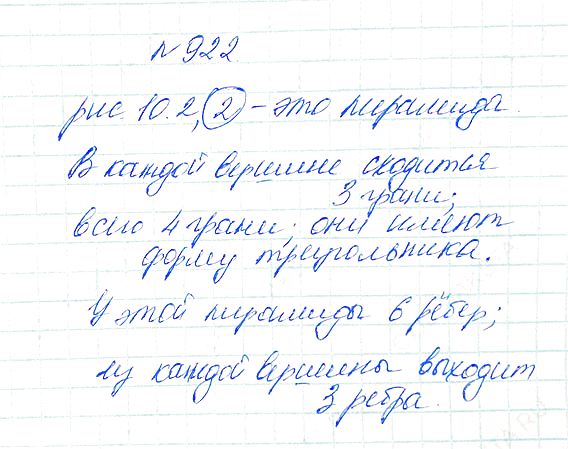 № 922
рис. 10.2, 2 – это пирамиды.
В каждой вершине сходится
3 грани;
всего 4 грани; они имеют
форму треугольника.
У этой пирамиды 6 рёбер;
из каждой вершины выходит
3 ребра.